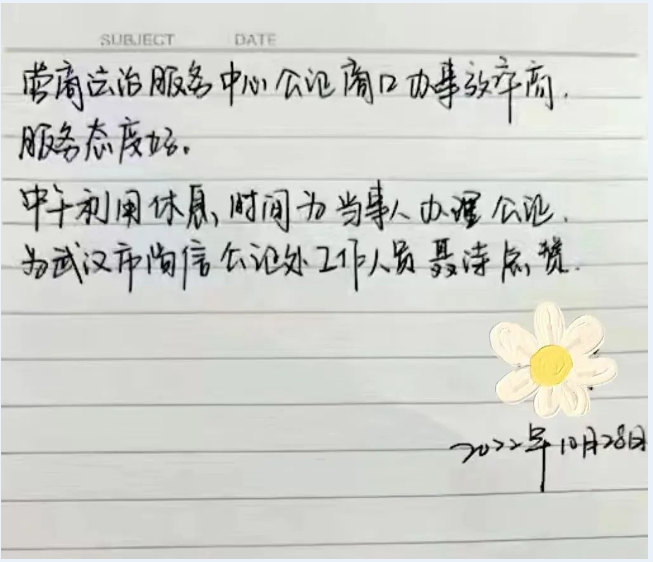 SUBJECT DATE
营商法治服务中心公证窗口办事效率高.
服务态度好.
中午利用休息时间为当事人办理公证.
为武汉市尚信公证处工作人员聂涛点赞.
2022年10月28日